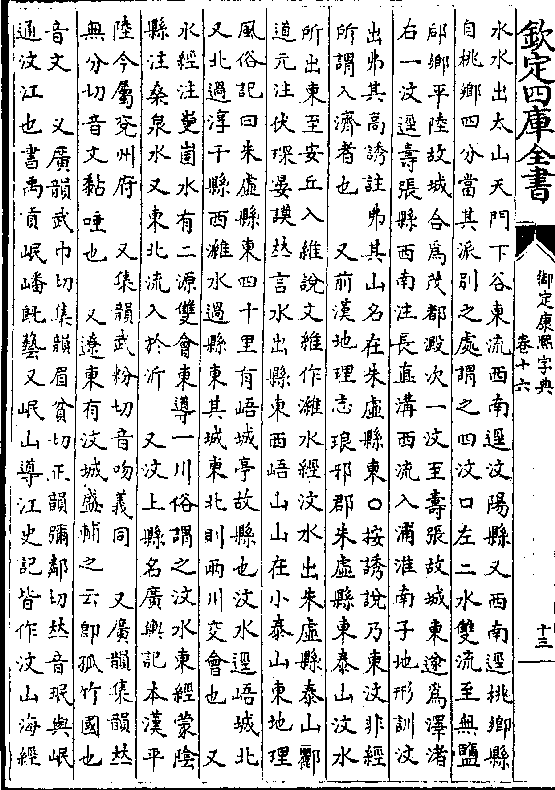 欽定四庫全書
御定康熙字典
卷十六
十三
水水出太山天門下谷東流西南逕汶陽縣又西南逕桃鄉縣
自桃鄉四分當其派別之處謂之四汶口左二水雙流至無鹽
郈鄉平陸故城合為茂都澱次一汶至壽張故城東遂為澤渚
右一汶逕壽張縣西南注長直溝西流入浦淮南子地形訓汶
出弗其高誘註弗其山名在朱虛縣東○按誘說乃東汶非經
所謂入濟者也　又前漢地理志琅邪郡朱虛縣東泰山汶水
所出東至安丘入維說文維作濰水經汶水出朱虛縣泰山酈
道元注伏琛晏謨𠀤言水出縣東西峿山山在小泰山東地理
風俗記曰朱虛縣東四十里有峿城亭故縣也汶水逕峿城北
又北過淳于縣西濰水過縣東其城東北則兩川交會也　又
水經注㠜崮水有二源雙會東導一川俗謂之汶水東經蒙陰
縣注桑泉水又東北流入於沂　又汶上縣名廣輿記本漢平
陸今屬兗州府　又集韻武粉切音吻義同　又廣韻集韻𠀤
無分切音文黏唾也　又遼東有汶城盛輔之云卽孤竹國也
音文　又廣韻武巾切集韻眉貧切正韻彌鄰切𠀤音珉與岷
通汶江也書禹貢岷嶓旣藝又岷山導江史記皆作汶山海經